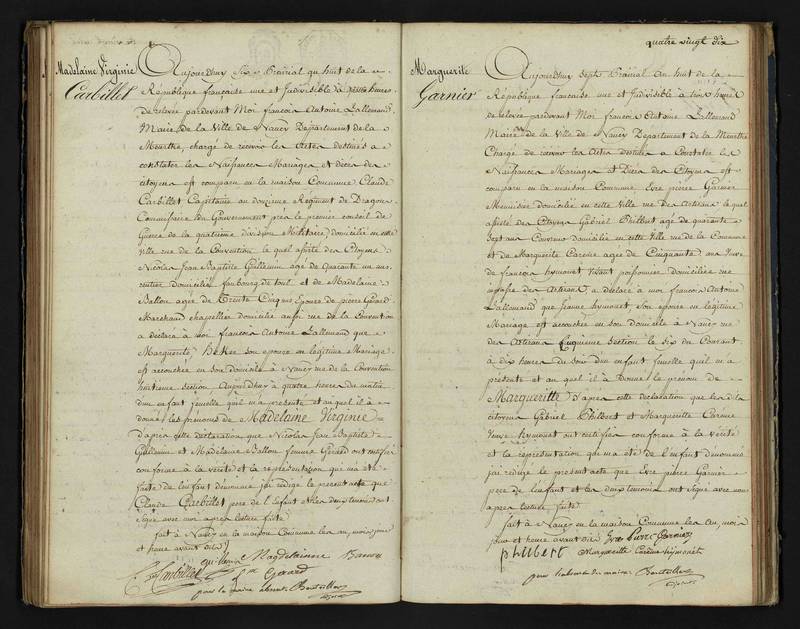 Madelaine Virginie
Carbillet
Aujourdhuy Six Prairial an huit de la
République française une et Indivisible à heures
de relevée pardevant Moi françois Antoine Lallemand
Maire de la Ville de Nancy Département de la
Meurthe, chargé de recevoir les Actes destinés à
constater les Naissances Mariages et décès des
citoyens est comparu en la maison Commune Claude
Carbillet Capitaine au douzieme Régiment de Dragons
Commissaire du Gouvernement près le premier conseil de
Guerre de la quatrieme division Militaire domicilié en cette
ville rue de la Convention le quel assisté des Citoyens
Nicolas Jean Baptiste Guillemin agé de Quarante un ans
rentier domicilié faubourg de toul et de Madelaine
Ballon agée de Trente Cinq ans Epouse de pierre Gérard
Marchand chapellier domicilié aussi rue de la Convention
a déclaré à moi françois Antoine Lallemand que
Marguerite son epouse en légitime Mariage
est accouchée en son domicile à Nancy rue de la Convention
huitieme section Aujourdhuy à quatre heures du matin
d'un enfant femelle qu'il m'a présenté et au quel il a
donné les prénoms de Madelaine Virginie
d'après cette déclaration que Nicolas Jean Baptiste
Guillemin et Madelaine Ballon femme Gerard ont certifié
conforme à la vérité et la représentation qui m'a été
faite de l'enfant dénommé j'ai rédigé le présent acte que
Claude Carbillet pere de l'Enfant et les deux temoins ont
signé avec moi après lecture faite
fait à Nancy en la maison Commune les an, mois, jour
et heure avant dits
Carbillet Guillemin Magdelainne
fme Gerard
pour le maire absent Boutillier
adjoint
quatre vingt dix
Marguerite
Garnier
Aujourdhuy Sept Prairial An huit de la
République française une et Indivisible à trois heures
de relevée pardevant Moi françois Antoine Lallemand
Maire de la Ville de Nancy Département de la Meurthe
Chargé de recevoir les Actes destinés à Constater les
Naissances Mariages et Décès des Citoyens est
comparu en la maison Commune Eve pierre Garnier
Menuisier domicilié en cette ville rue des Artisans le quel
assisté des Citoyens Gabriel Philbert agé de quarante
Sept ans domicilié en cette Ville rue de la Commune
et de Marguerite Carême agée de Cinquante ans Veuve
de françois hymonet Vivant poissonnier domiciliée rue
des Artisans a déclaré à moi françois Antoine
Lallemand que Jeanne hymonet son epouse en légitime
Mariage est accouchée en son domicile à Nancy rue
des Artisans Cinquieme Section le six du Courant
à dix heures du soir d'un enfant femelle qu'il m'a
présenté et au quel il a donné le prénom de
Margueritte d'après cette déclaration que les dits
citoyens Gabriel Philbert et Margueritte Carême
Veuve hymonet ont certifiée conforme à la vérité
et la représentation qui m'a été de l'enfant dénommé
j'ai rédigé le présent acte que Eve pierre Garnier
pere de l'enfant et les deux temoins ont signé avec moi
après lecture faite
fait à Nancy en la maison Commune les An, mois
jour et heure avant dits Eve Pierre Garnier
philbert Marguerite Carême hymonet
pour l'absence du maire Boutillier
adjoint